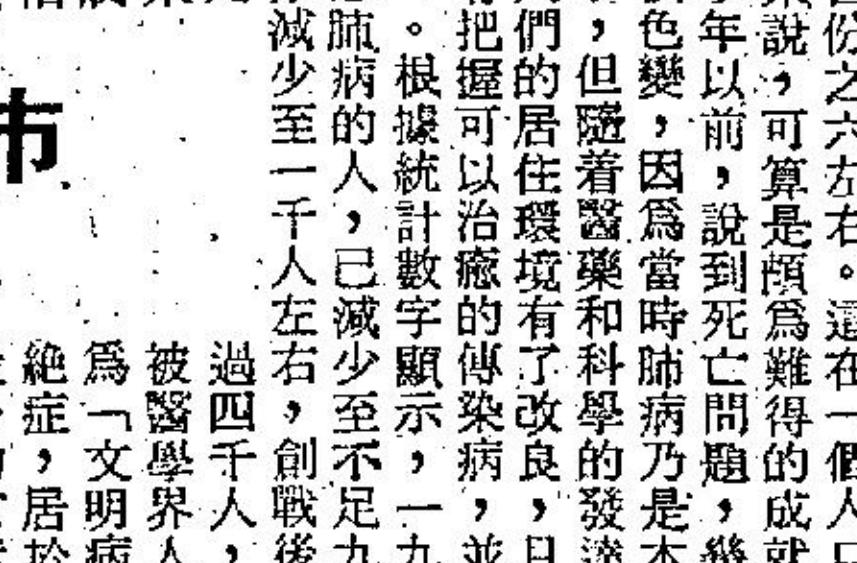 份之六左右。這在一個人口
說，可算是頗爲難得的成就
年以前，說到死亡問題，幾
色變，因爲當時肺病乃是本
，但隨着醫藥和科學的發達
們的居住環境有了改良，日
把握可以治癒的傳染病，並
。根據統計數字顯示，一九
肺病的人，已減少至不足九
減少至一千人左右，創戰後
過四千人，
被醫學界人
爲「文明病
絕症，居於
市